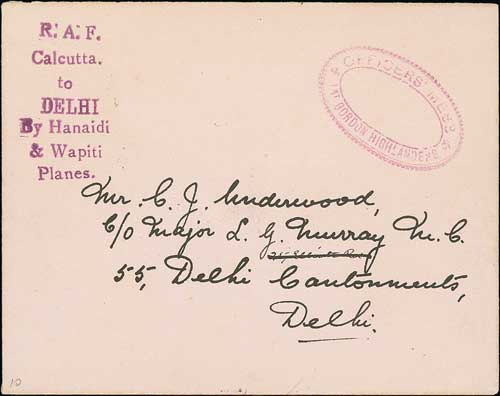 R. A. F.
Calcutta.
to
DELHI
By Hanaidi
& Wapiti
Planes.
OFFICERS' MESS
GORDON HIGHLANDERS
Mr. C. J. Underwood,
C/o Major L. G. Murray M. C.
55, Delhi Cantonments,
Delhi.
10